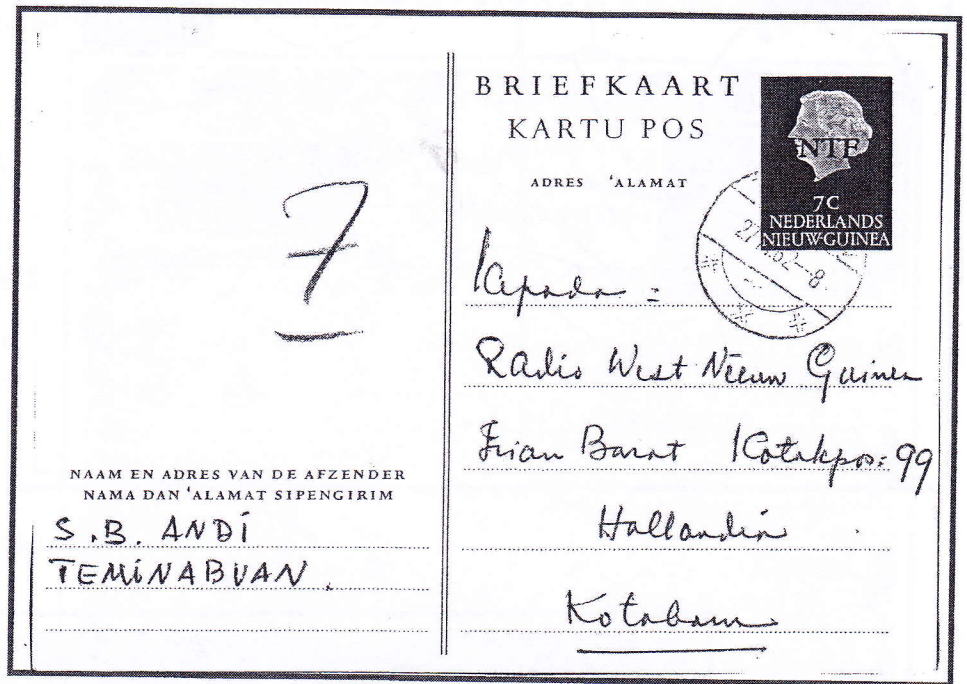 BRIEFKAART
KARTU POS
ADRES 'ALAMAT
NTF
7C
NEDERLANDS
NIEUW-GUINEA
7
Kepada =
Radio West Nieuw Guinea
Irian Barat Kotakpos: 99
Hollandia
Kotabaru
NAAM EN ADRES VAN DE AFZENDER
NAMA DAN 'ALAMAT SIPENGIRIM
S.B. ANDI
TEMINABUAN.